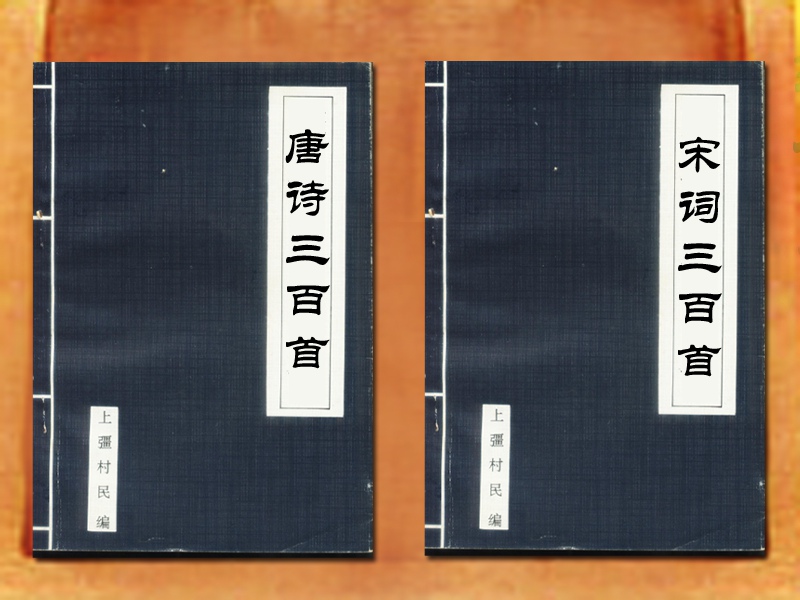 唐诗三百首
上彊村民 编
宋词三百首
上彊村民 编